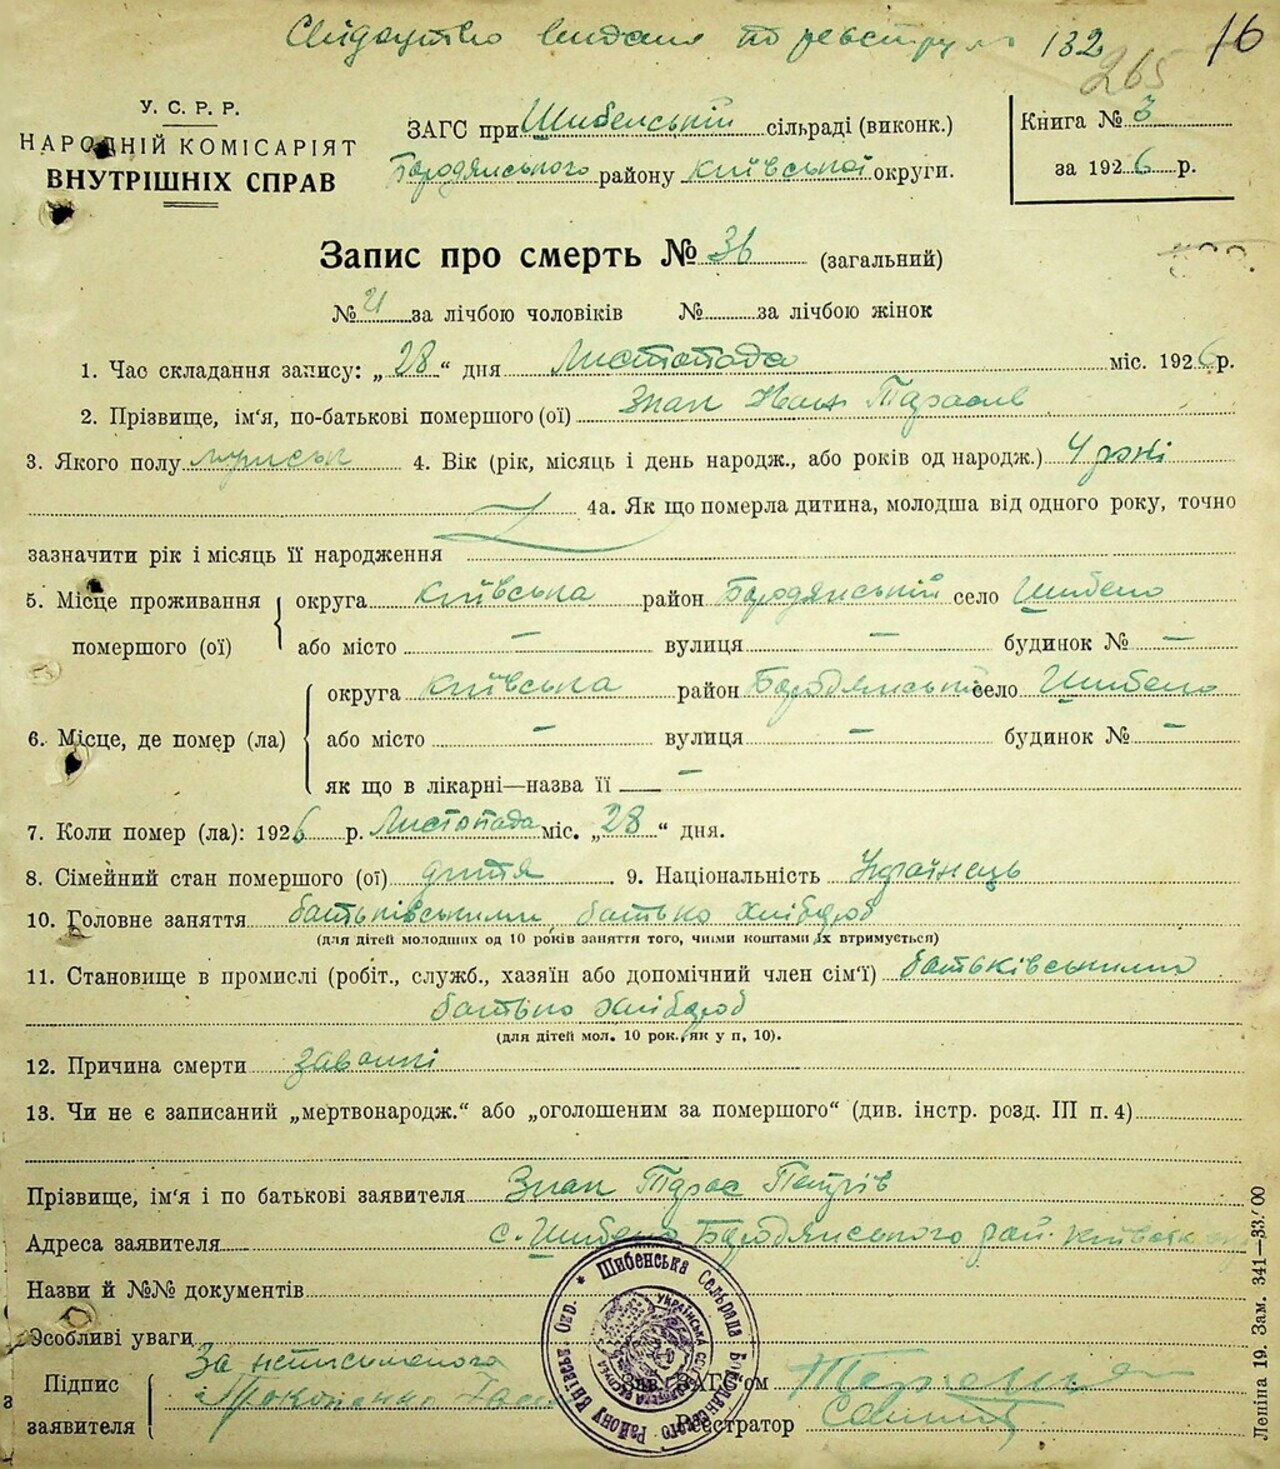 Свідоцтво видане по реєстру № 132
16
265
У. С. Р. Р.
НАРОДНІЙ КОМІСАРІЯТ
ВНУТРІШНІХ СПРАВ
ЗАГС при Шибенській сільраді (виконк.)
Бородянського району Київської округи.
Книга № 3
за 1926 р.
Запис про смерть № 36 (загальний)
№ 21 за лічбою чоловіків № за лічбою жінок
1. Час складання запису: „28“ дня Листопада міс. 1926 р.
2. Прізвище, ім‘я, по-батькові помершого (ої) Знак Іван Тарасів
3. Якого полу мужськ 4. Вік (рік, місяць і день народж., або років од народж.) 4 рокі
4а. Як що померла дитина, молодша від одного року, точно
зазначити рік і місяць її народження
5. Місце проживання помершого (ої) округа Київська район Бородянський село Шибено
або місто — вулиця — будинок № —
6. Місце, де помер (ла) округа Київська район Бородянський село Шибено
або місто — вулиця — будинок № —
як що в лікарні—назва її —
7. Коли помер (ла): 1926 р. Листопада міс. „28“ дня.
8. Сімейний стан помершого (ої) дитя 9. Національність Українець
10. Головне заняття батьківськими, батько хлібороб
(для дітей молодших од 10 років заняття того, чиїми коштами їх втримується)
11. Становище в промислі (робіт., служб., хазяїн або допомічний член сім‘ї) батьківськими
батько хлібороб
(для дітей мол. 10 рок., як у п, 10).
12. Причина смерти
13. Чи не є записаний „мертвонародж.“ або „оголошеним за помершого“ (див. інстр. розд. III п. 4)
Прізвище, ім‘я і по батькові заявителя Знак Тарас Петрів
Адреса заявителя с. Шибено Бородянського рай. Київськ
Назви й №№ документів
Особливі уваги
Підпис заявителя За неписьменого
Прокопенко
Зав. ЗАГС‘ом
Реєстратор
* Шибенська Сельрада Бородянського Району Київськ. Окр.
Леніна 19. Зам. 341—33/00